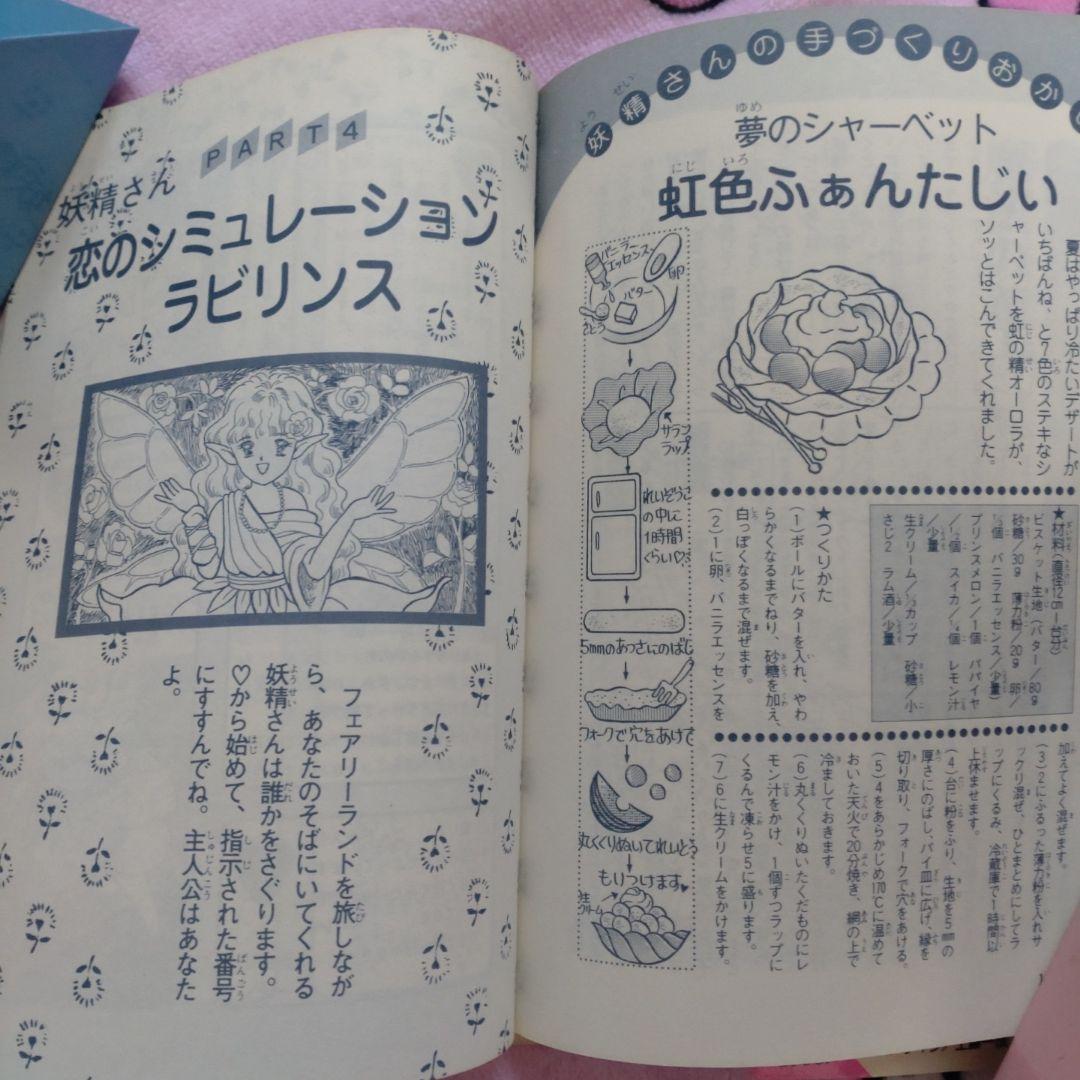 PART4
妖精さん
恋のシミュレーション
ラビリンス
フェアリーランドを旅しなが
ら、あなたのそばにいてくれる
妖精さんは誰かをさぐります。
♡から始めて、指示された番号
にすすんでね。主人公はあなた
よ。
妖精さんの手づくりおか
夢のシャーベット
虹色ふぁんたじい
夏はやっぱり冷たいデザートが
いちばんね、と7色のステキなシ
ャーベットを虹の精オーロラが、
ソッとはこんできてくれました。
バニラエッセンス
卵
バター
さとう
サランラップ
れいぞうこ
の中に
1時間
くらい♡
5mmのあつさにのばし
フォークで穴をあけて
丸くくりぬいてれいとう
もりつけます♥
生クリーム
★材料(直径12cm一台分)
ビスケット生地(バター/80g
砂糖/30g 薄力粉/20g 卵/
½個 バニラエッセンス/少量)
プリンスメロン/1個 パパイヤ
/½個 スイカ/¼個 レモン汁
/少量
生クリーム/½カップ 砂糖/小
さじ2 ラム酒/少量
★つくりかた
(1)ボールにバターを入れ、やわ
らかくなるまでねり、砂糖を加え、
白っぽくなるまで混ぜます。
(2)1に卵、バニラエッセンスを
加えてよく混ぜます。
(3)2にふるった薄力粉を入れサ
ックリ混ぜ、ひとまとめにしてラ
ップにくるみ、冷蔵庫で1時間以
上休ませます。
(4)台に粉をふり、生地を5mmの
厚さにのばし、パイ皿に広げ、縁を
切り取り、フォークで穴をあける。
(5)4をあらかじめ170℃に温めて
おいた天火で20分焼き、網の上で
冷ましておきます。
(6)丸くくりぬいたくだものにレ
モン汁をかけ、1個ずつラップに
くるんで凍らせ5に盛ります。
(7)6に生クリームをかけます。